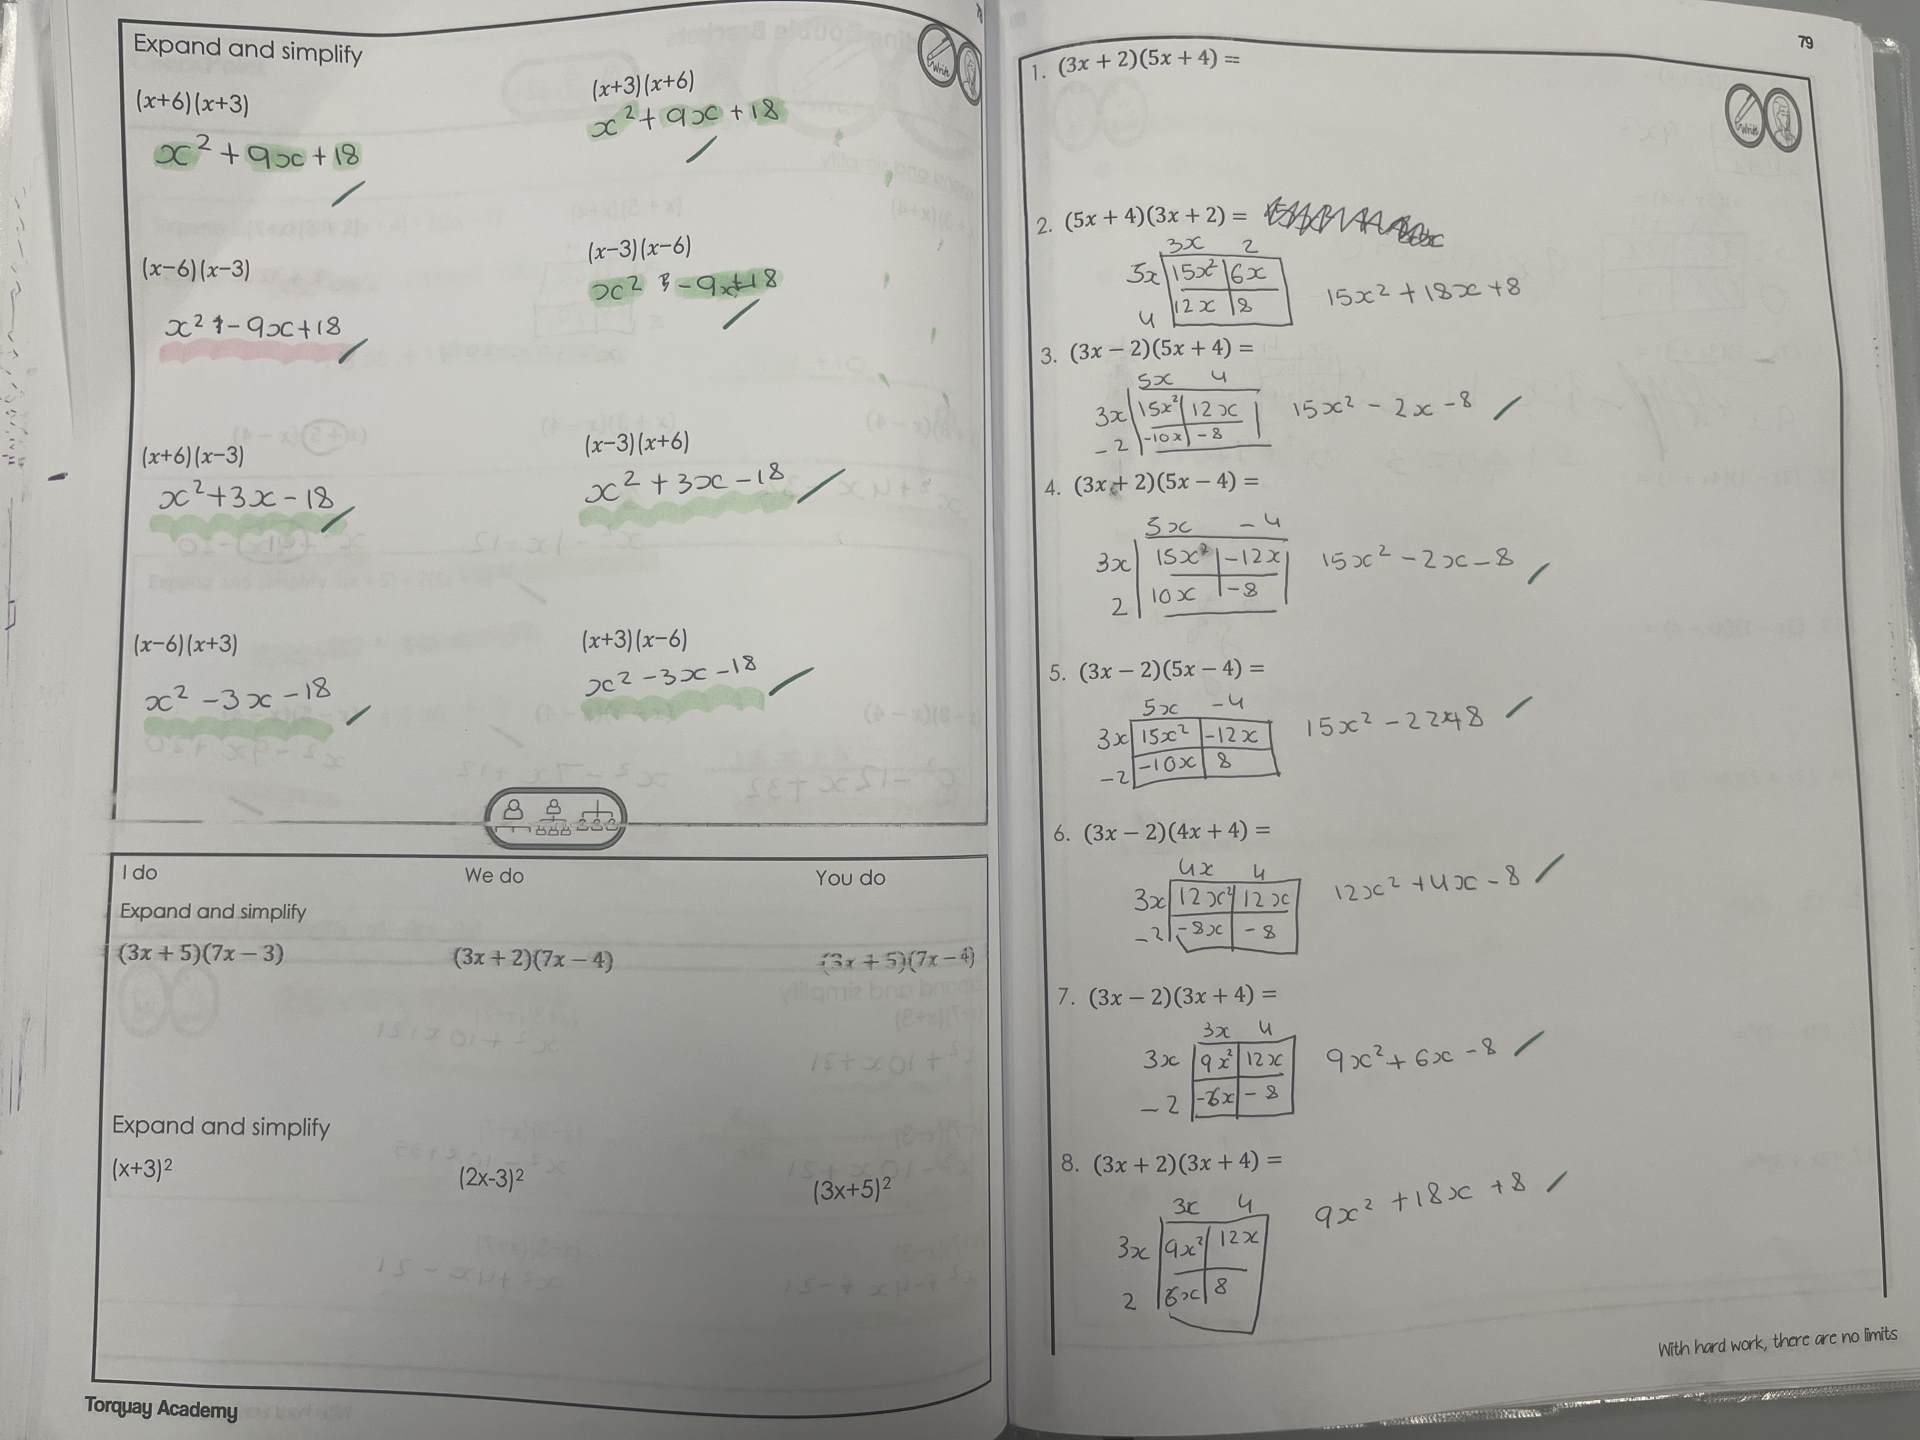 Expand and simplify
(x+6)(x+3)
x² + 9x + 18
(x+3)(x+6)
x² + 9x + 18
(x−6)(x−3)
x² - 9x + 18
(x−3)(x−6)
x² - 9x + 18
(x+6)(x−3)
x² + 3x - 18
(x−3)(x+6)
x² + 3x - 18
(x−6)(x+3)
x² - 3x - 18
(x+3)(x−6)
x² - 3x - 18
I do
We do
You do
Expand and simplify
(3x + 5)(7x − 3)
(3x + 2)(7x − 4)
(3x + 5)(7x − 4)
Expand and simplify
(x+3)²
(2x-3)²
(3x+5)²
Torquay Academy
79
Write
1. (3x + 2)(5x + 4) =
Write
2. (5x + 4)(3x + 2) =
3x 2
5x 15x² 6x
4 12x 8
15x² + 18x + 8
3. (3x − 2)(5x + 4) =
5x 4
3x 15x² 12x
-2 -10x -8
15x² - 2x - 8
4. (3x + 2)(5x − 4) =
5x -4
3x 15x² -12x
2 10x -8
15x² - 2x - 8
5. (3x − 2)(5x − 4) =
5x -4
3x 15x² -12x
-2 -10x 8
15x² - 22x + 8
6. (3x − 2)(4x + 4) =
4x 4
3x 12x² 12x
-2 -8x -8
12x² + 4x - 8
7. (3x − 2)(3x + 4) =
3x 4
3x 9x² 12x
-2 -6x -8
9x² + 6x - 8
8. (3x + 2)(3x + 4) =
3x 4
3x 9x² 12x
2 6x 8
9x² + 18x + 8
With hard work, there are no limits